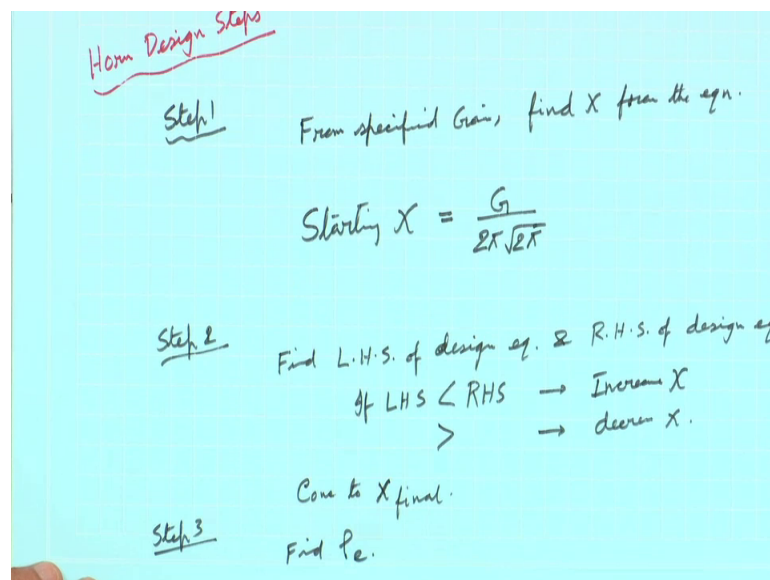 Horn Design Steps
Step 1 From specified Gain, find X from the eqn.
Starting X = G / 2π√2π
Step 2 Find L.H.S. of design eq. & R.H.S. of design eq
If LHS < RHS → Increase X
> → decrea X.
Come to X final.
Step 3 Find ρe.